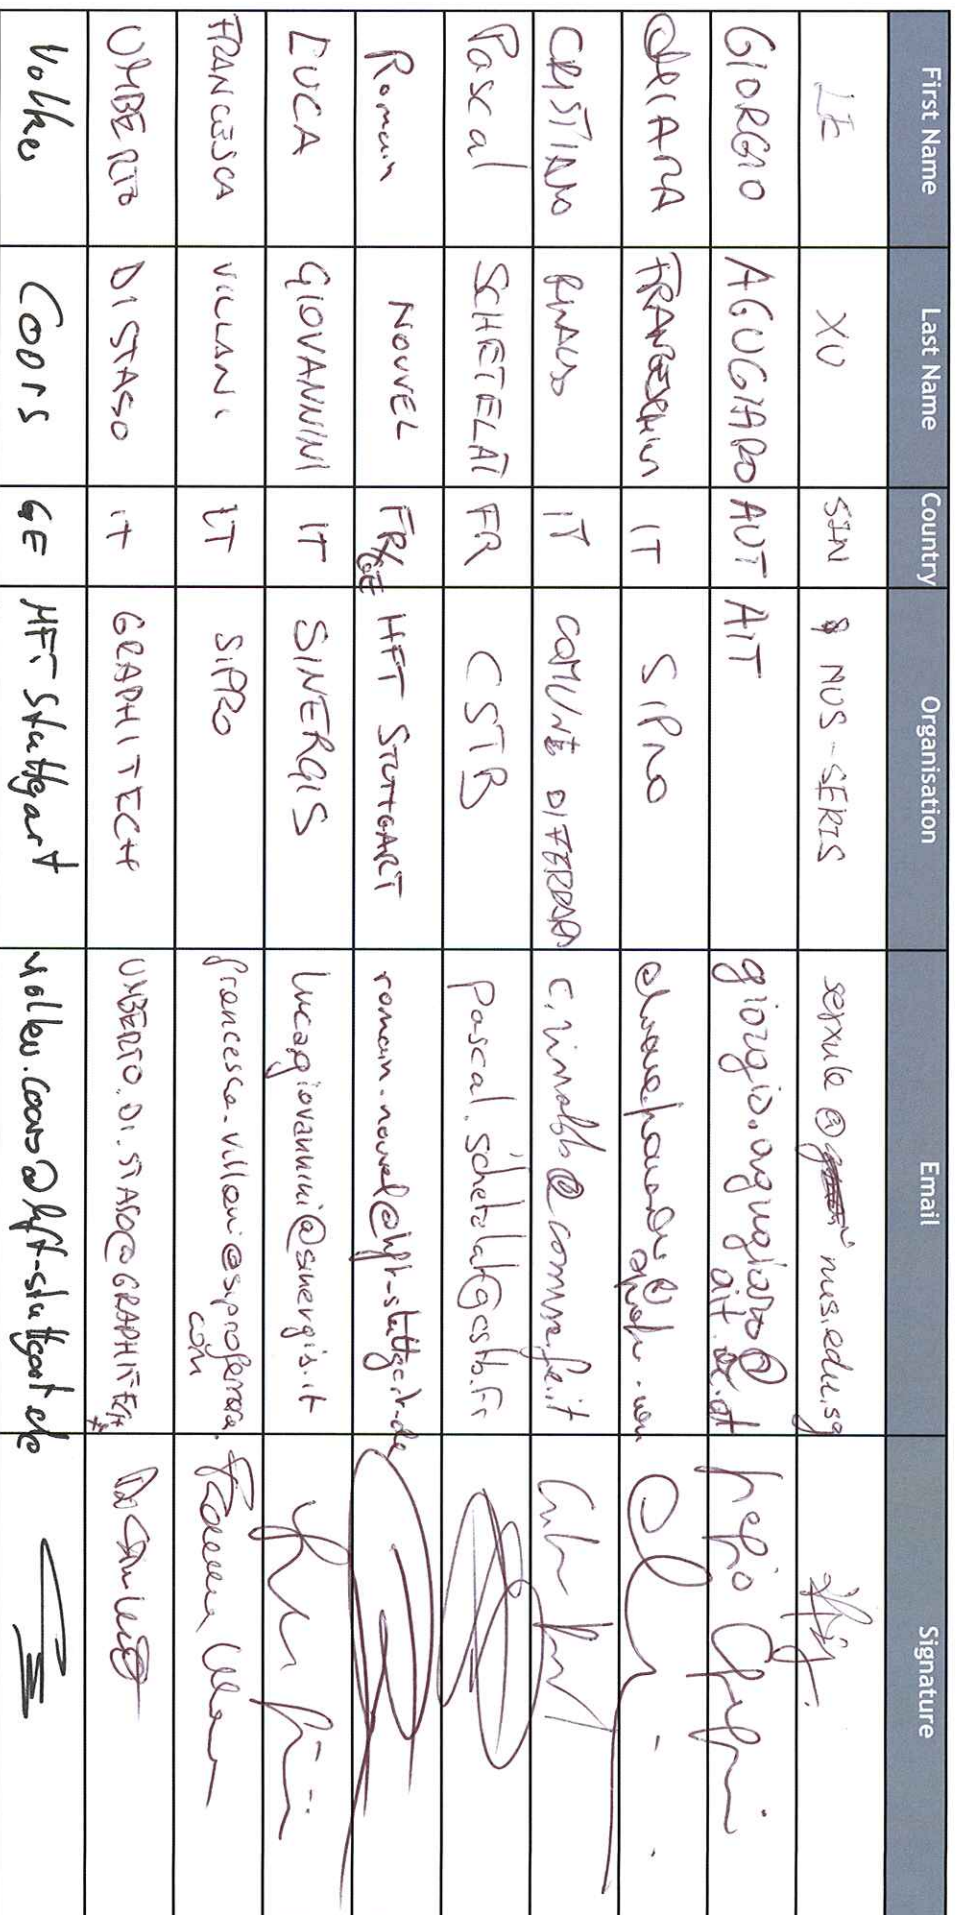 First Name Last Name Country Organisation Email Signature
LE XU SIN NUS-SERIS serxule@nus.edu.sg
GIORGIO AGUGIARO AUT AIT giorgio.agugiaro@
ait.ac.at
CHIARA FRANCESCHINI IT SIPRO
CRISTIANO RINALDO IT COMUNE DI FERRARA c.rinaldo@comune.fe.it
Pascal SCHETELAT FR CSTB pascal.schetelat@cstb.fr
Romain NOUVEL FR/GE HFT STUTTGART romain.nouvel@hft-stuttgart.de
LUCA GIOVANNINI IT SINERGIS luca.giovannini@sinergis.it
FRANCESCA VILLANI IT SIPRO francesca.villani@siproferrara.
com
UMBERTO DI STASO IT GRAPHITECH UMBERTO.DI.STASO@GRAPHITECH
Volker Coors GE HFT Stuttgart volker.coors@hft-stuttgart.de